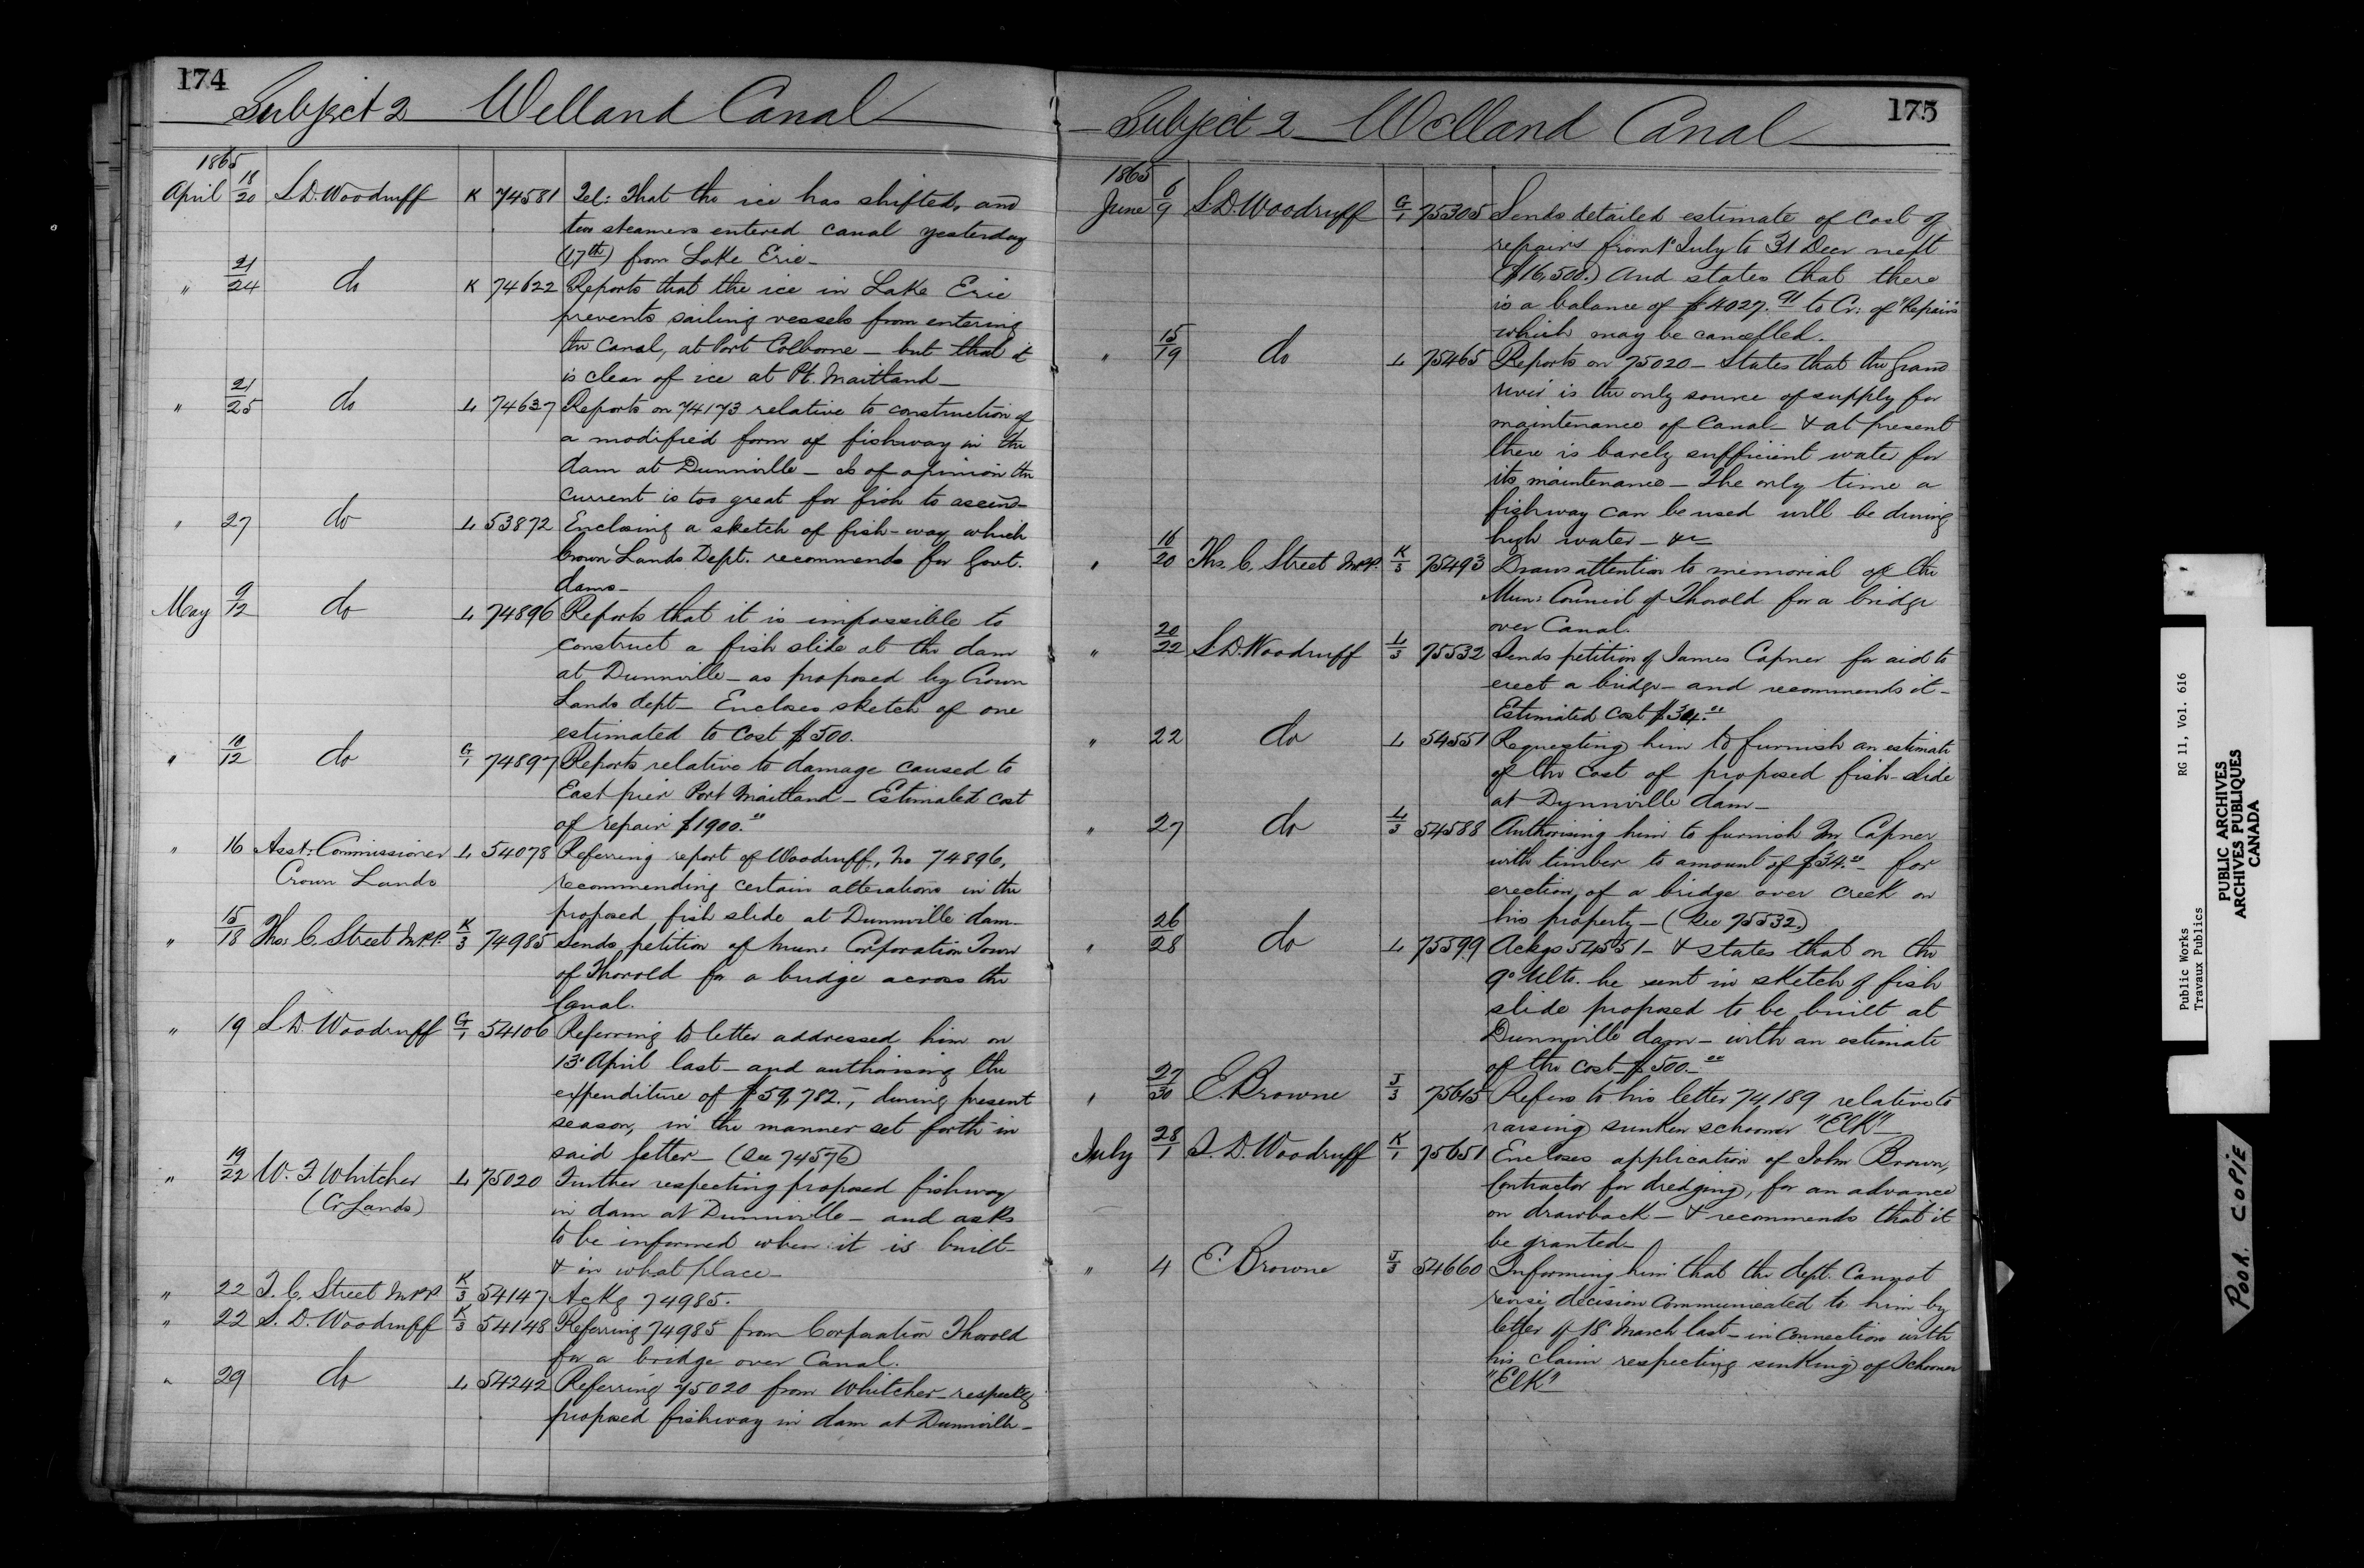 174
Subject 2 Welland Canal
1865
April 18/20 S. D. Woodruff K 74581 Tel: That the ice has shifted, and
two steamers entered canal yesterday
(17th) from Lake Erie_
" 21/24 do K 74622 Reports that the ice in Lake Erie
prevents sailing vessels from entering
the Canal, at Port Colborne _ but that it
is clear of ice at Pt. Maitland_
" 21/25 do L 74637 Reports on 74173 relative to construction of
a modified form of fishway in the
dam at Dunnville _ Is of opinion the
current is too great for fish to ascend_
" 27 do L 53872 Enclosing a sketch of fish-way which
Crown Lands Dept. recommends for Govt.
dams_
May 9/12 do L 74896 Reports that it is impossible to
construct a fish slide at the dam
at Dunnville _ as proposed by Crown
Lands dept _ Encloses sketch of one
estimated to cost $500.
" 10/12 do G/1 74897 Reports relative to damage caused to
East pier Port Maitland _ Estimated cost
of repair $1900.00
" 16 Asst: Commissioner L 54078 Referring report of Woodruff, No 74896,
Crown Lands recommending certain alterations in the
proposed fish slide at Dunnville dam_
" 15/18 Thos. C. Street M.P.P. K/3 74985 Sends petition of Mun: Corporation Town
of Thorold for a bridge across the
Canal.
" 19 S. D. Woodruff G/1 54106 Referring to letter addressed him on
13 April last _ and authorising the
expenditure of $59,782._, during present
season, in the manner set forth in
said letter _ (See 74576)
" 19/22 W. F. Whitcher L 75020 Further respecting proposed fishway
(Cr Lands) in dam at Dunnville _ and asks
to be informed when it is built_
& in what place_
" 22 T. C. Street M.P.P. K/3 54147 Ackg 74985.
" 22 S. D. Woodruff K/3 54148 Referring 74985 from Corporation Thorold
for a bridge over Canal.
" 29 do L 54242 Referring 75020 from Whitcher _ respectg
proposed fishway in dam at Dunnville_
175
Subject 2 Welland Canal
1865
June 6/9 S. D. Woodruff G/1 75305 Sends detailed estimate of cost of
repairs from 1st July to 31 Decr next
($16,500.) And states that there
is a balance of $4027.91 to Cr: of "Repairs"
which may be cancelled.
" 15/19 do L 75465 Reports on 75020 _ States that the Grand
river is the only source of supply for
maintenance of Canal _ & at present
there is barely sufficient water for
its maintenance _ The only time a
fishway can be used will be during
high water _ &c
" 16/20 Ths. C. Street M.P.P. K/3 75493 Draws attention to memorial of the
Mun: Council of Thorold for a bridge
over Canal.
" 20/22 S. D. Woodruff L/3 75532 Sends petition of James Capner for aid to
erect a bridge _ and recommends it_
Estimated cost $34.00
" 22 do L 54551 Requesting him to furnish an estimate
of the cost of proposed fish-slide
at Dynnville dam_
" 27 do L/3 54588 Authorising him to furnish Mr Capner
with timber to amount of $34.00 _ for
erection of a bridge over creek on
his property _ (See 75532.)
" 26/28 do L 75599 Ackgs 54551 _ & states that on the
9o Ulto. he sent in sketch of fish
slide proposed to be built at
Dunnville dam _ with an estimate
of the cost _ $500._00
" 27/30 E. Browne J/3 75645 Refers to his letter 74189 relative to
raising sunken schooner "Elk"_
July 28/1 S. D. Woodruff K/1 75651 Encloses application of John Brown,
Contractor for dredging, for an advance
on drawback _ & recommends that it
be granted_
" 4 E. Browne J/3 54660 Informing him that the dept. cannot
revise decision communicated to him by
letter of 18 March last _ in connection with
his claim respecting sinking of Schooner
"Elk"
Public Works RG 11, Vol. 616
Travaux Publics
PUBLIC ARCHIVES
ARCHIVES PUBLIQUES
CANADA
POOR COPIE